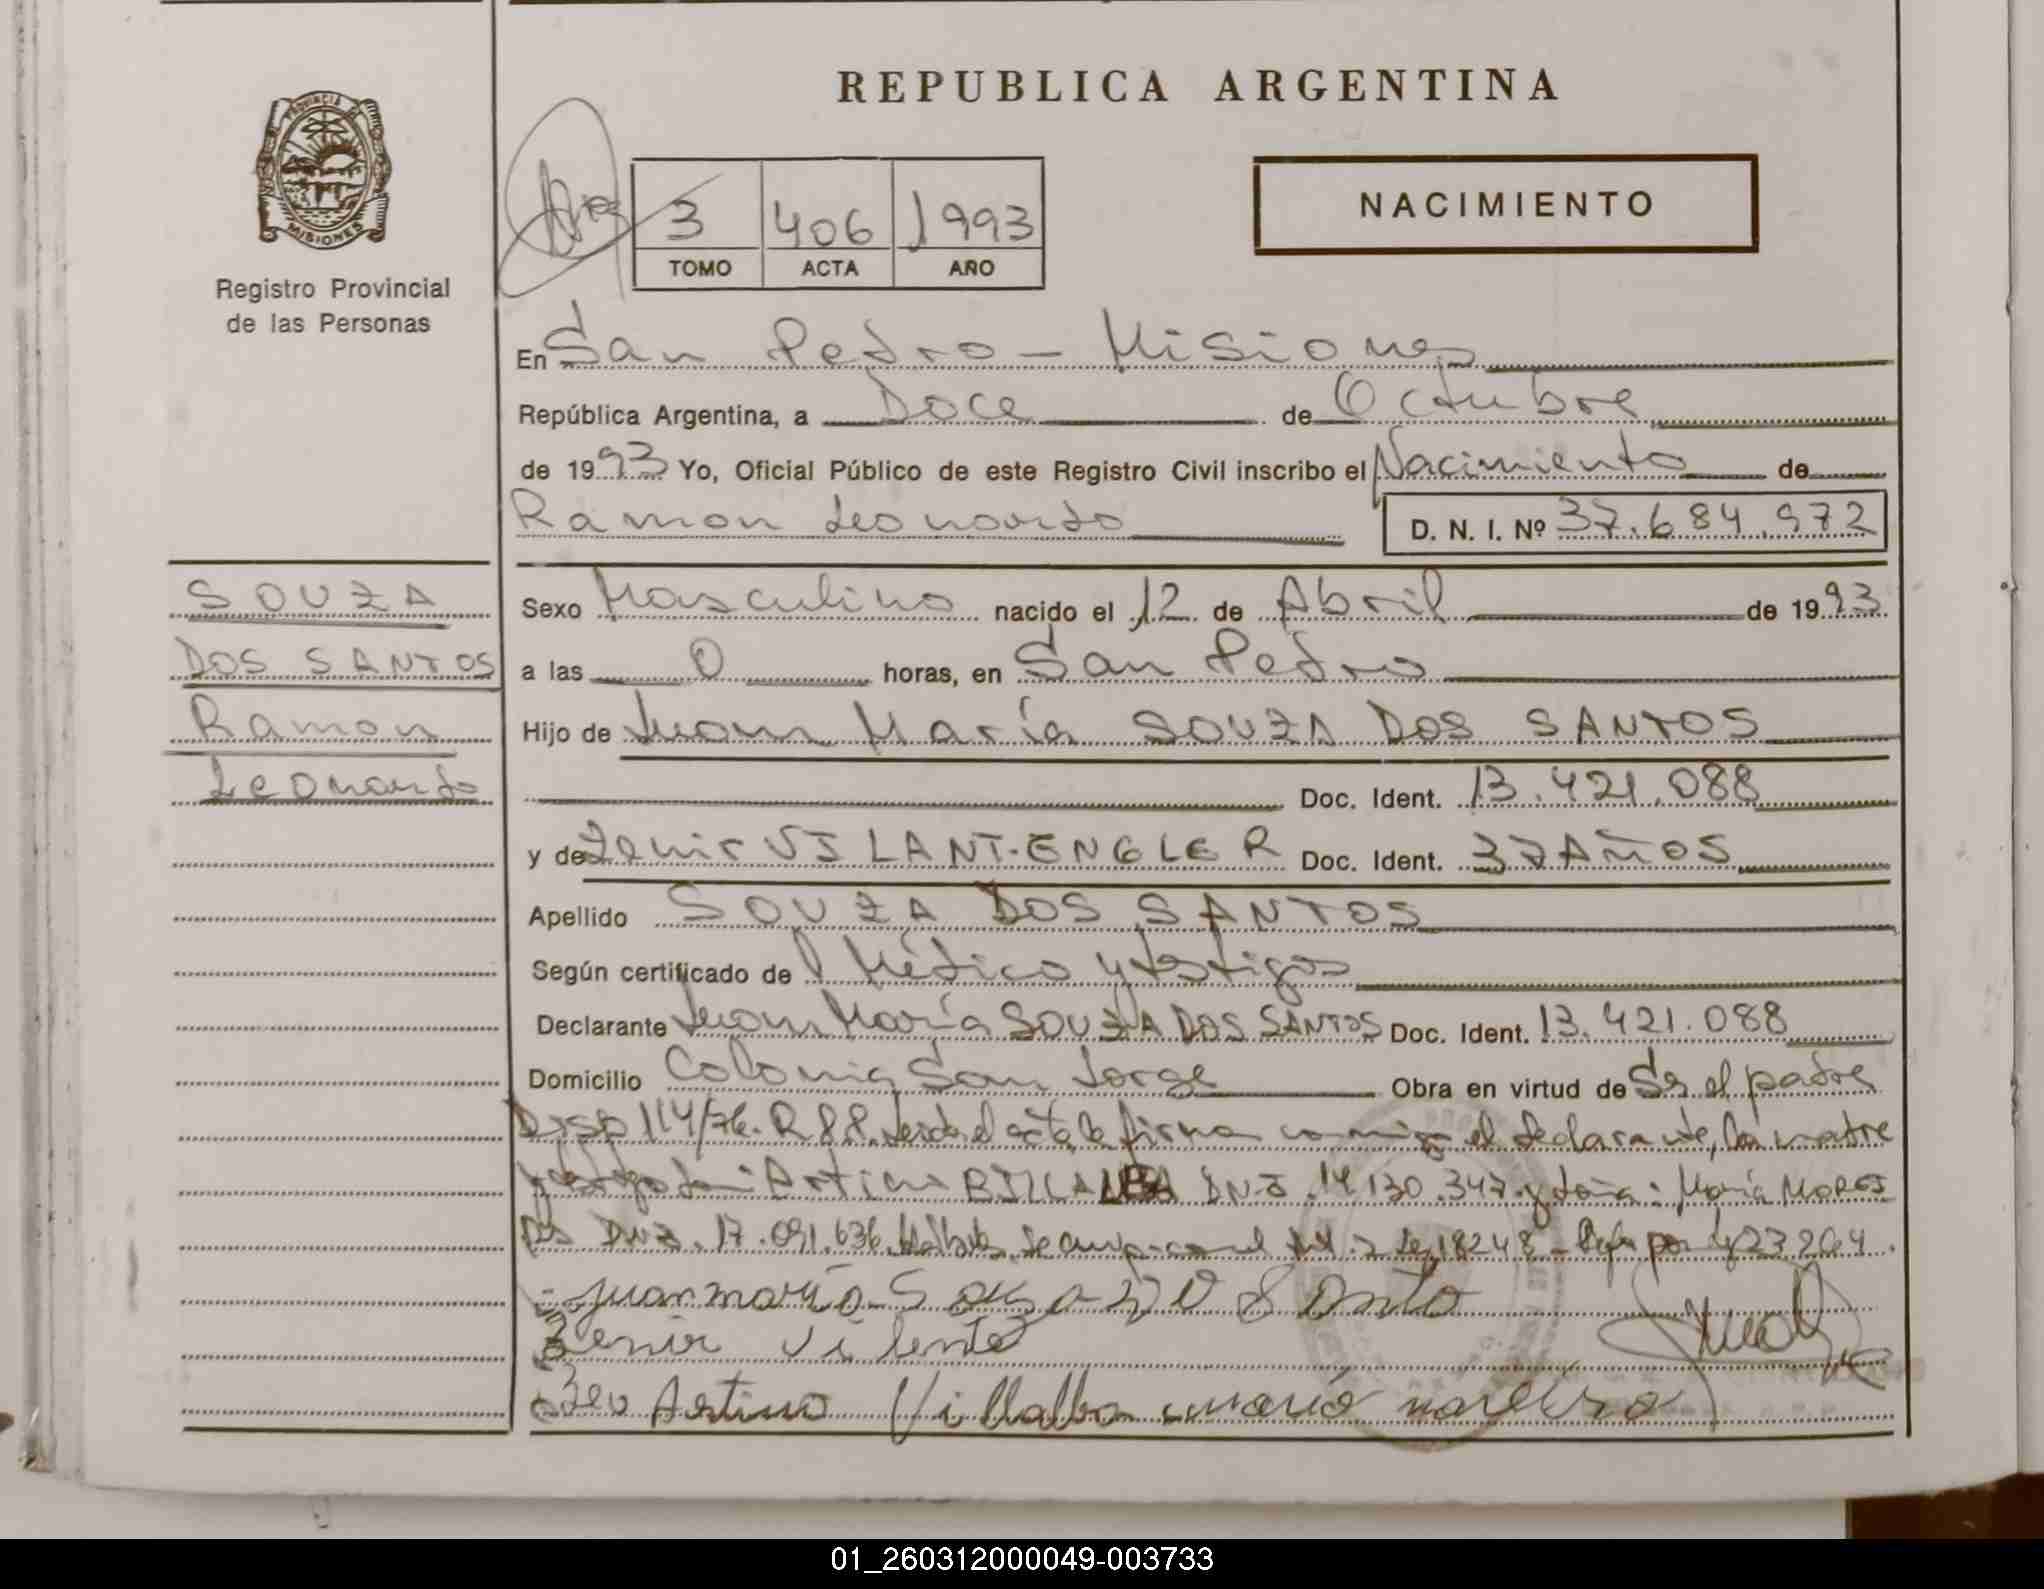 REPUBLICA ARGENTINA
PROVINCIA DE
MISIONES
Registro Provincial
de las Personas
3 406 1993
TOMO ACTA AÑO
NACIMIENTO
En San Pedro - Misiones
República Argentina, a Doce de Octubre
de 1993 Yo, Oficial Público de este Registro Civil inscribo el Nacimiento de
Ramon Leonardo D. N. I. Nº 37.684.972
SOUZA
DOS SANTOS
Ramon
Leonardo
Sexo Masculino nacido el 12 de Abril de 1993
a las 0 horas, en San Pedro
Hijo de Juan María SOUZA DOS SANTOS
Doc. Ident. 13.421.088
y de Zenir VILANT-ENGLER Doc. Ident. 37 AÑOS
Apellido SOUZA DOS SANTOS
Según certificado de l Médico y testigos
Declarante Juan María SOUZA DOS SANTOS Doc. Ident. 13.421.088
Domicilio Colonia San Jorge Obra en virtud de Ser el padre
Disp 114/76. R 88. Leida el acta la firma conmigo el declarante, la madre
y testigos Don: VILLALBA DNI. 14.130.347 y doña: María MOREI
DNI. 17.091.636 18248 - por ley 23264.
juan maria
Zenir Vilente
Villalba maria
01_260312000049-003733